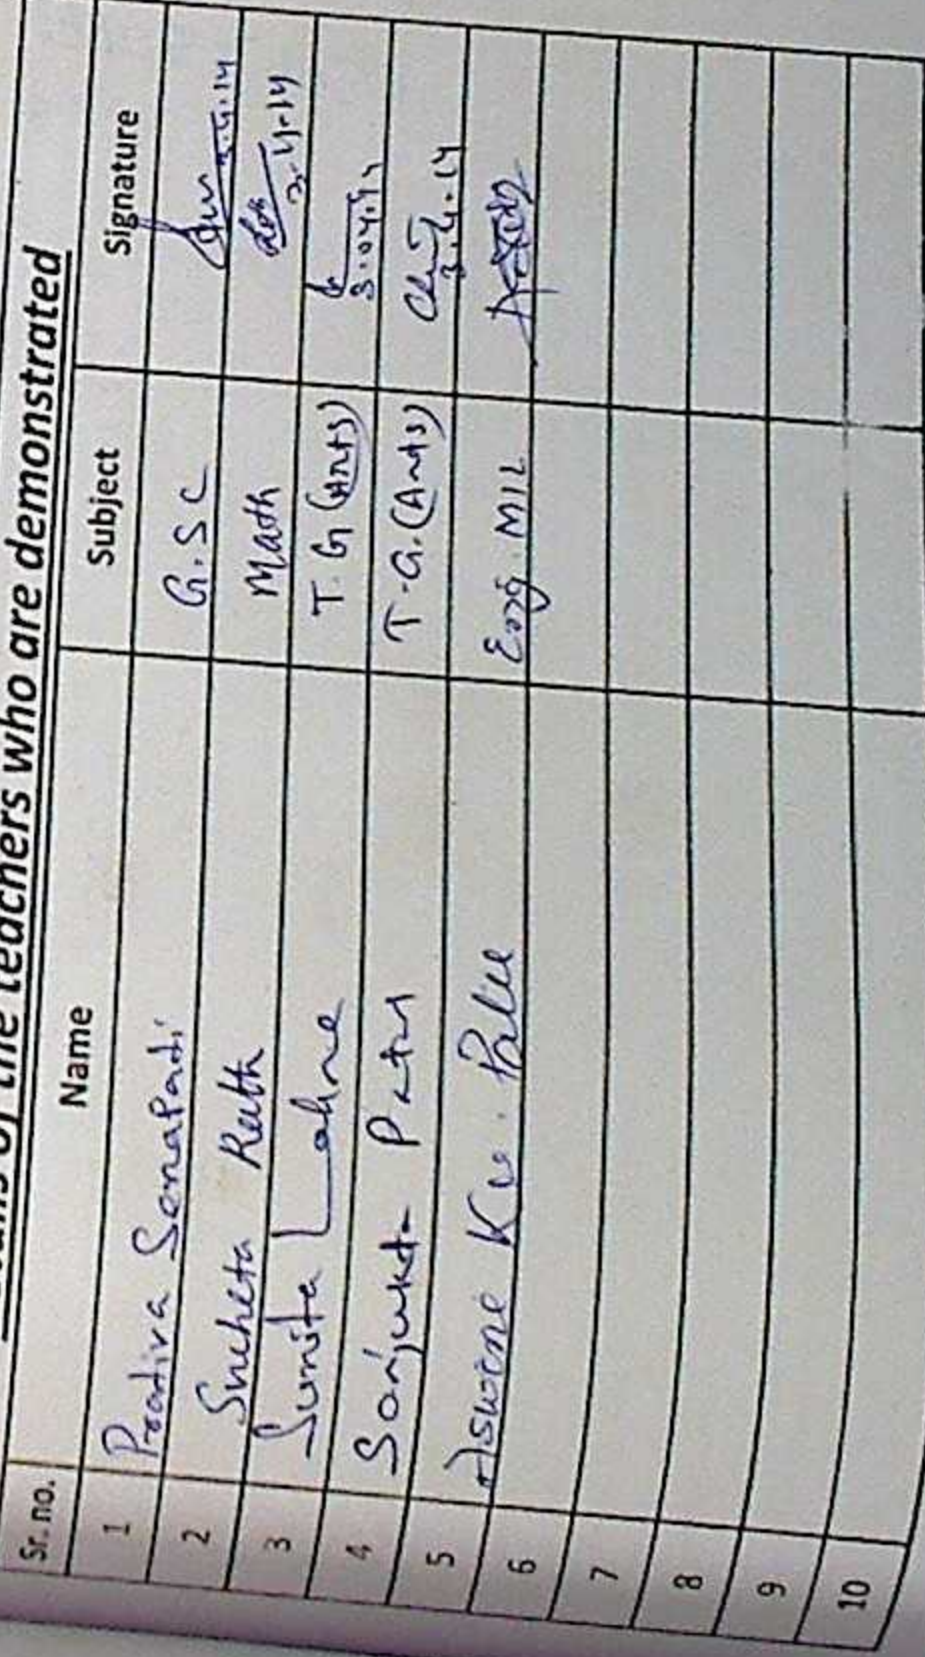 of the teachers who are demonstrated
Sr. no. Name Subject Signature
1 Pradiva Senapati G.SC 3.4.14
2 Sucheta Rath Math 3.4.14
3 Sumita T.G (Arts) 3.04.14
4 Sanjukta T.G.(Arts) 3.4.14
5 Ku. Eng. MIL
6
7
8
9
10